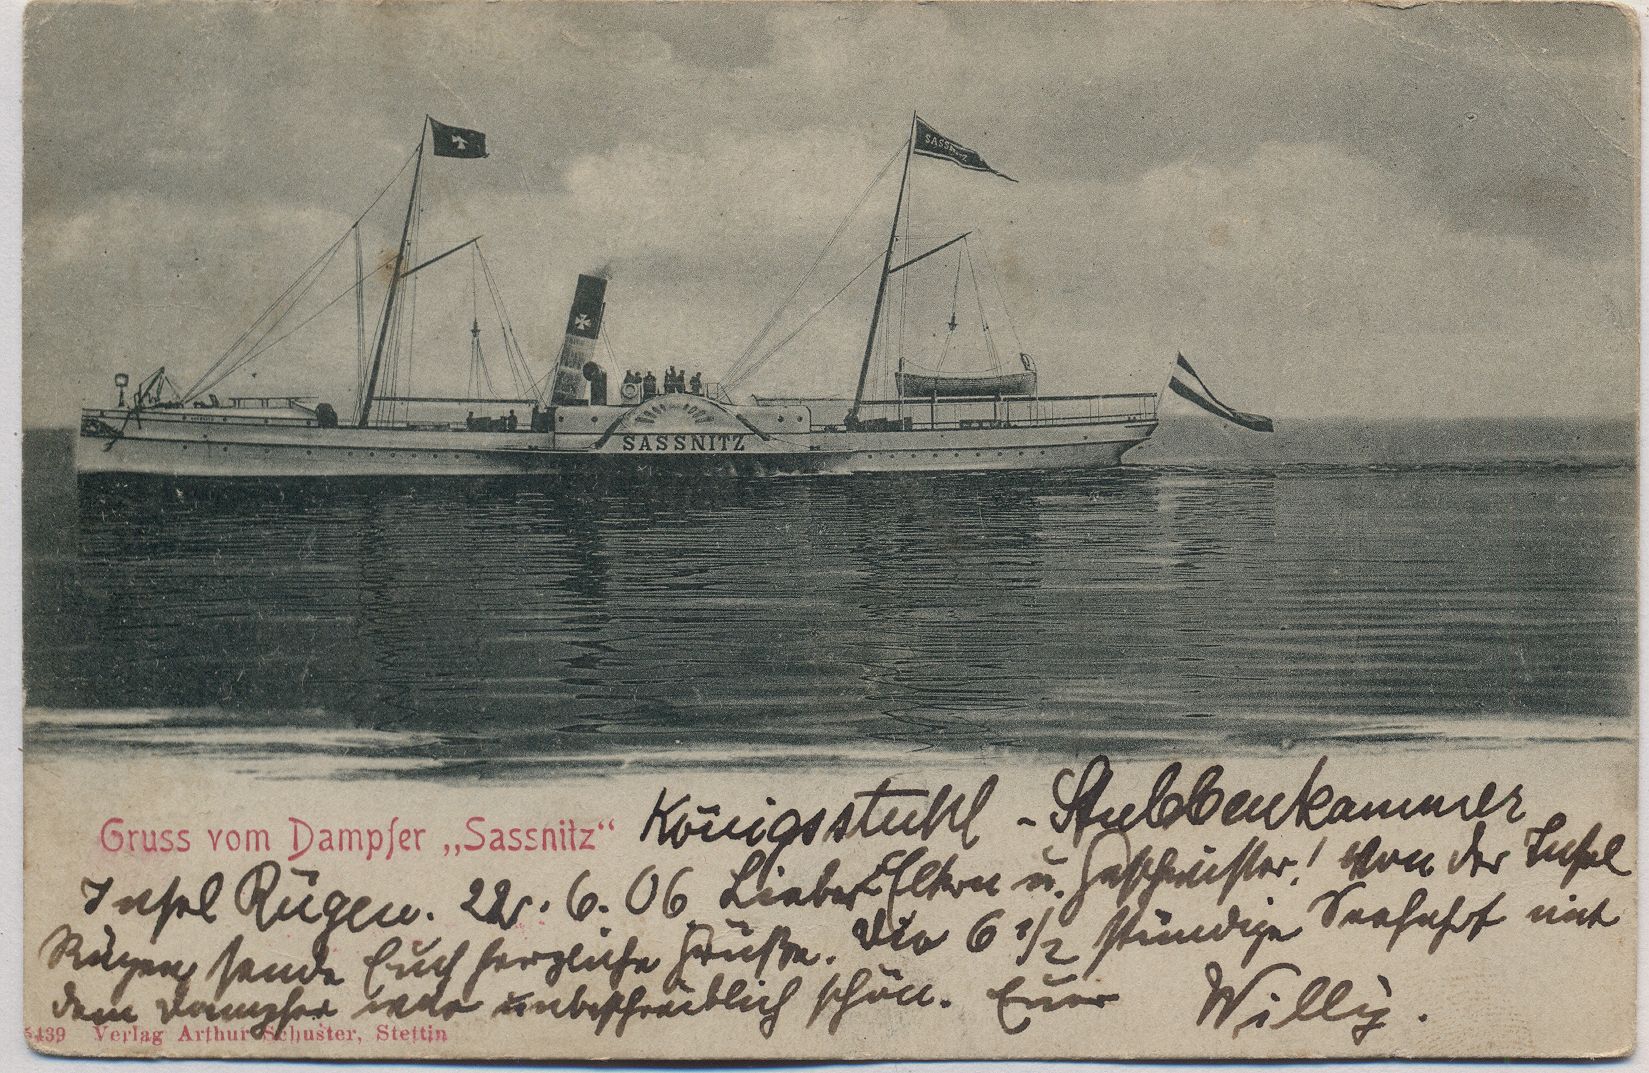 SASSNITZ
SASSNITZ
Gruss vom Dampfer „Sassnitz“ Königsstuhl - Stubbenkammer
Insel Rügen. 22. 6. 06 Liebe Eltern u. Geschwister! Von der Insel
Rügen sende Euch herzliche Grüße. Die 6 1/2 stündige Seefahrt mit
dem Dampfer war unbeschreiblich schön. Euer Willy.
5439 Verlag Arthur Schuster, Stettin